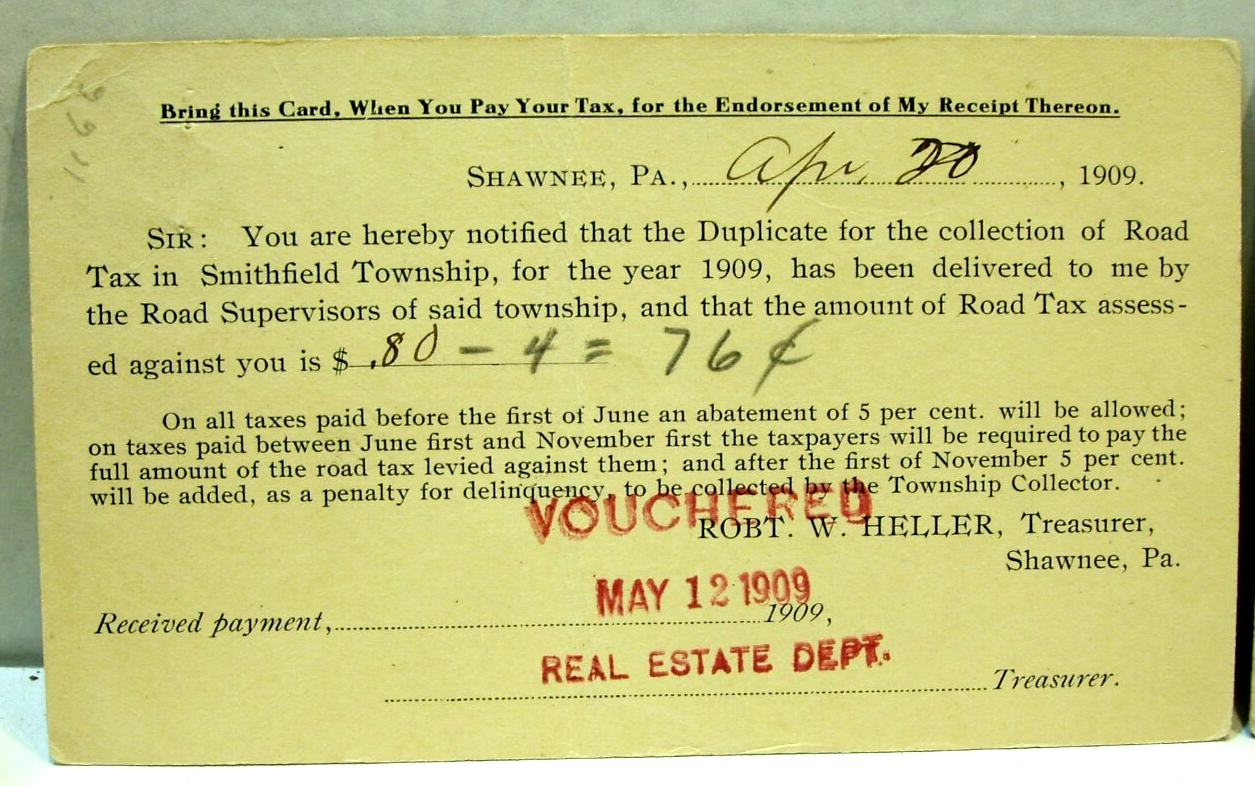 Bring this Card, When You Pay Your Tax, for the Endorsement of My Receipt Thereon.
SHAWNEE, PA., Apr. 20, 1909.
SIR: You are hereby notified that the Duplicate for the collection of Road
Tax in Smithfield Township, for the year 1909, has been delivered to me by
the Road Supervisors of said township, and that the amount of Road Tax assess-
ed against you is $ .80 - 4 = 76 ¢
On all taxes paid before the first of June an abatement of 5 per cent. will be allowed;
on taxes paid between June first and November first the taxpayers will be required to pay the
full amount of the road tax levied against them; and after the first of November 5 per cent.
will be added, as a penalty for delinquency, to be collected by the Township Collector.
VOUCHERED
ROBT. W. HELLER, Treasurer,
Shawnee, Pa.
MAY 12 1909
Received payment, 1909,
REAL ESTATE DEPT.
Treasurer.